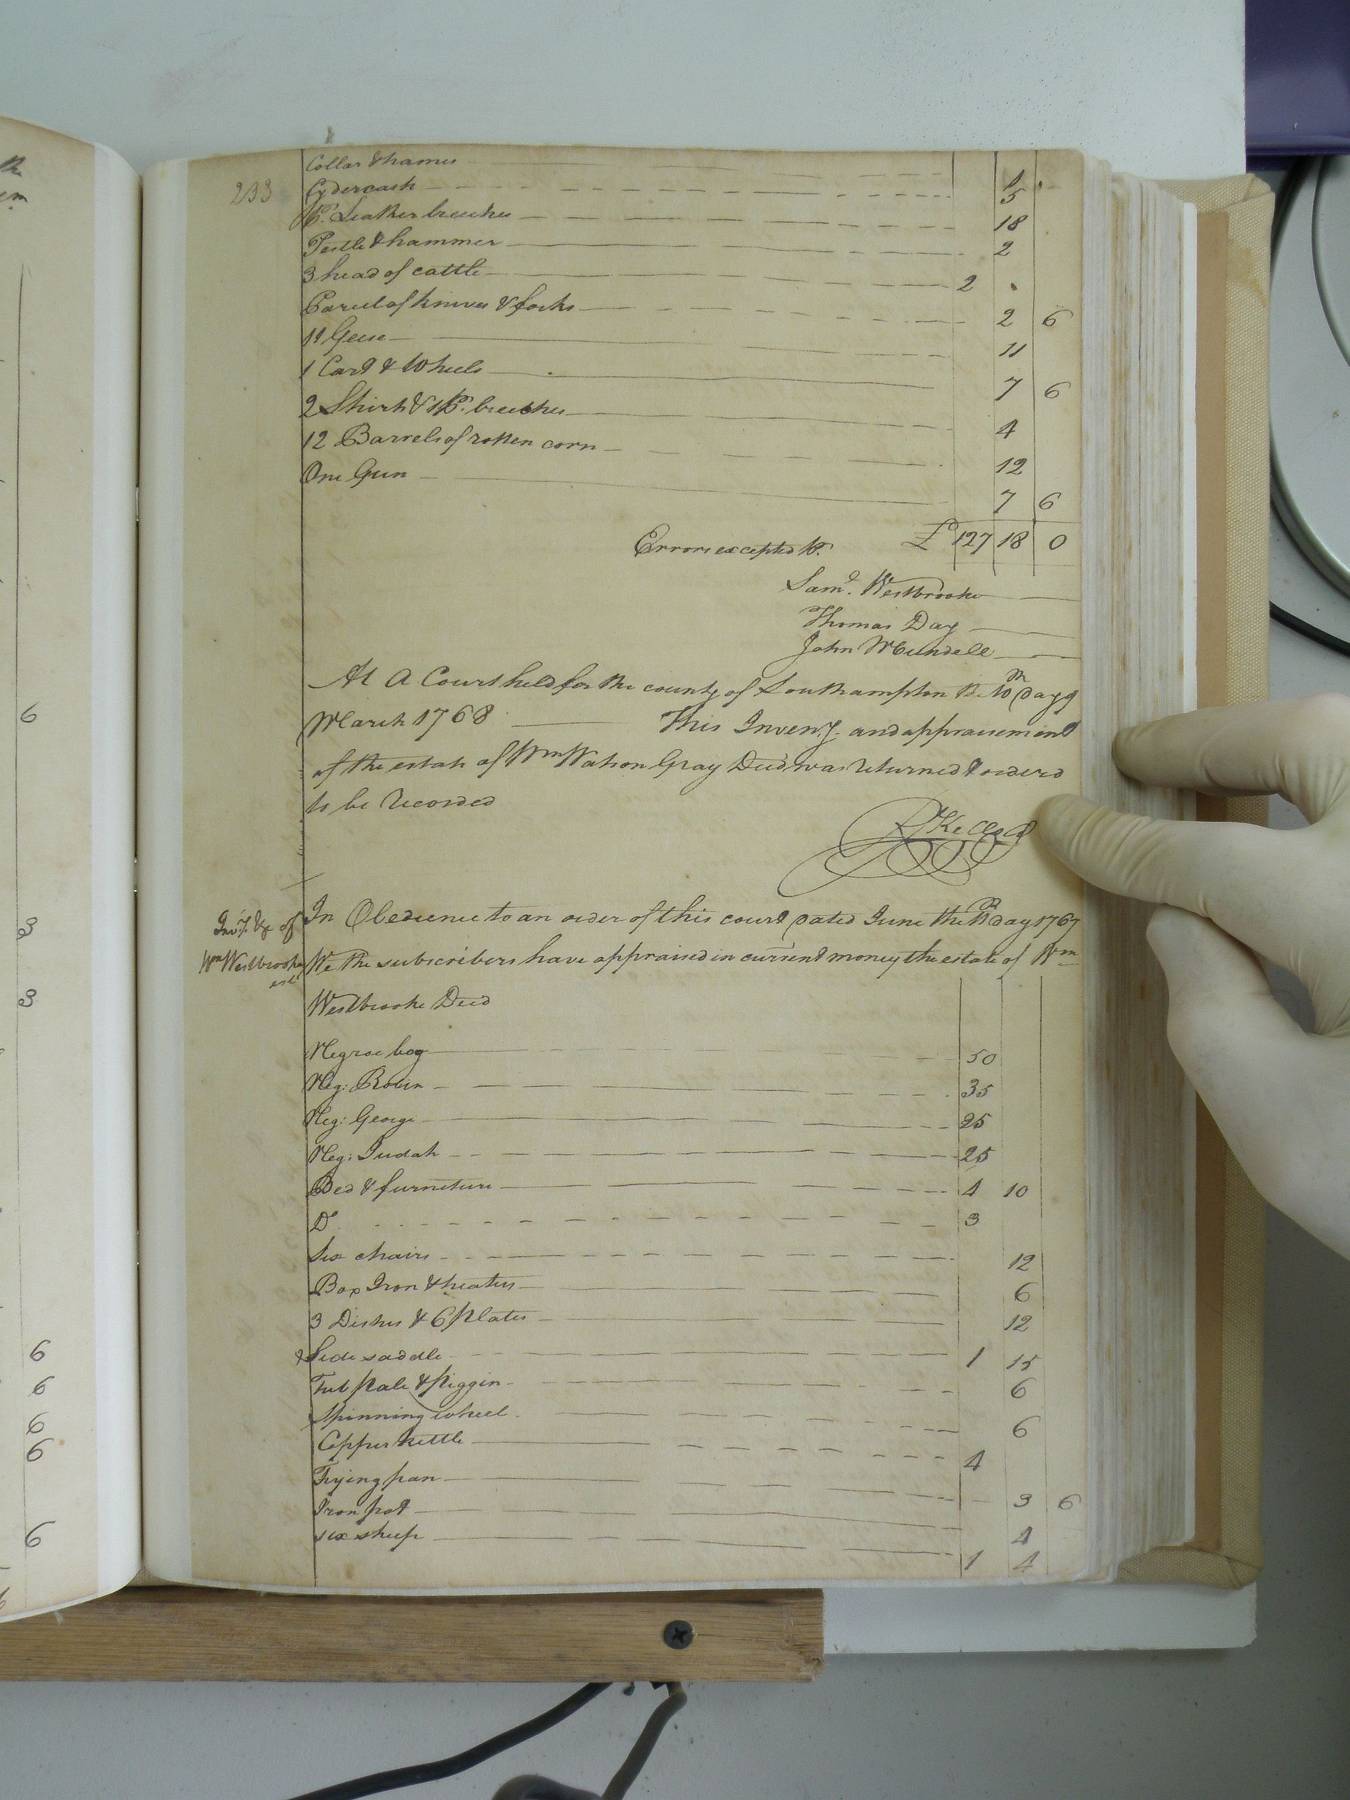 233
Collar & hames 4
Cydercask 5
Pr. Leather breeches 18
Pestle & hammer 2
3 head of cattle 2 .
Parcel of knives & forks 2 6
11 Geese 11
1 Cart & Wheels 7 6
2 Shirts & 1 Pr. breeches 4
12 Barrels of rotten corn 12
One Gun 7 6
Errors excepted Pr. £127 18 0
Saml. Westbrooke
Thomas Day
John Mundell
At A Court held for the county of Southampton the 10th Day of
March 1768 This Inven.y. and appraisement
of the estate of Wm Watson Gray Decd was returned & orderd
to be Recorded
R Kello
Inv.y. &c of
Wm Westbrooks
est.
In Obedience to an order of this court dated June the 11th day 1767
We the subscribers have appraised in current money the estate of Wm
Westbrooke Decd
Negroe boy 50
Neg: Robin 35
Neg: George 25
Neg: Judah 25
Bed & furniture 4 10
Do. 3
Six chairs 12
Box Iron & heaters 6
3 Dishes & 6 Plates 12
Side saddle 1 15
Tub Pale & Piggin 6
Spinning wheel 6
Copper kettle 4
Frying pan 3 6
Iron pot 4
six sheep 1 4
6
3
3
6
6
6
6
6